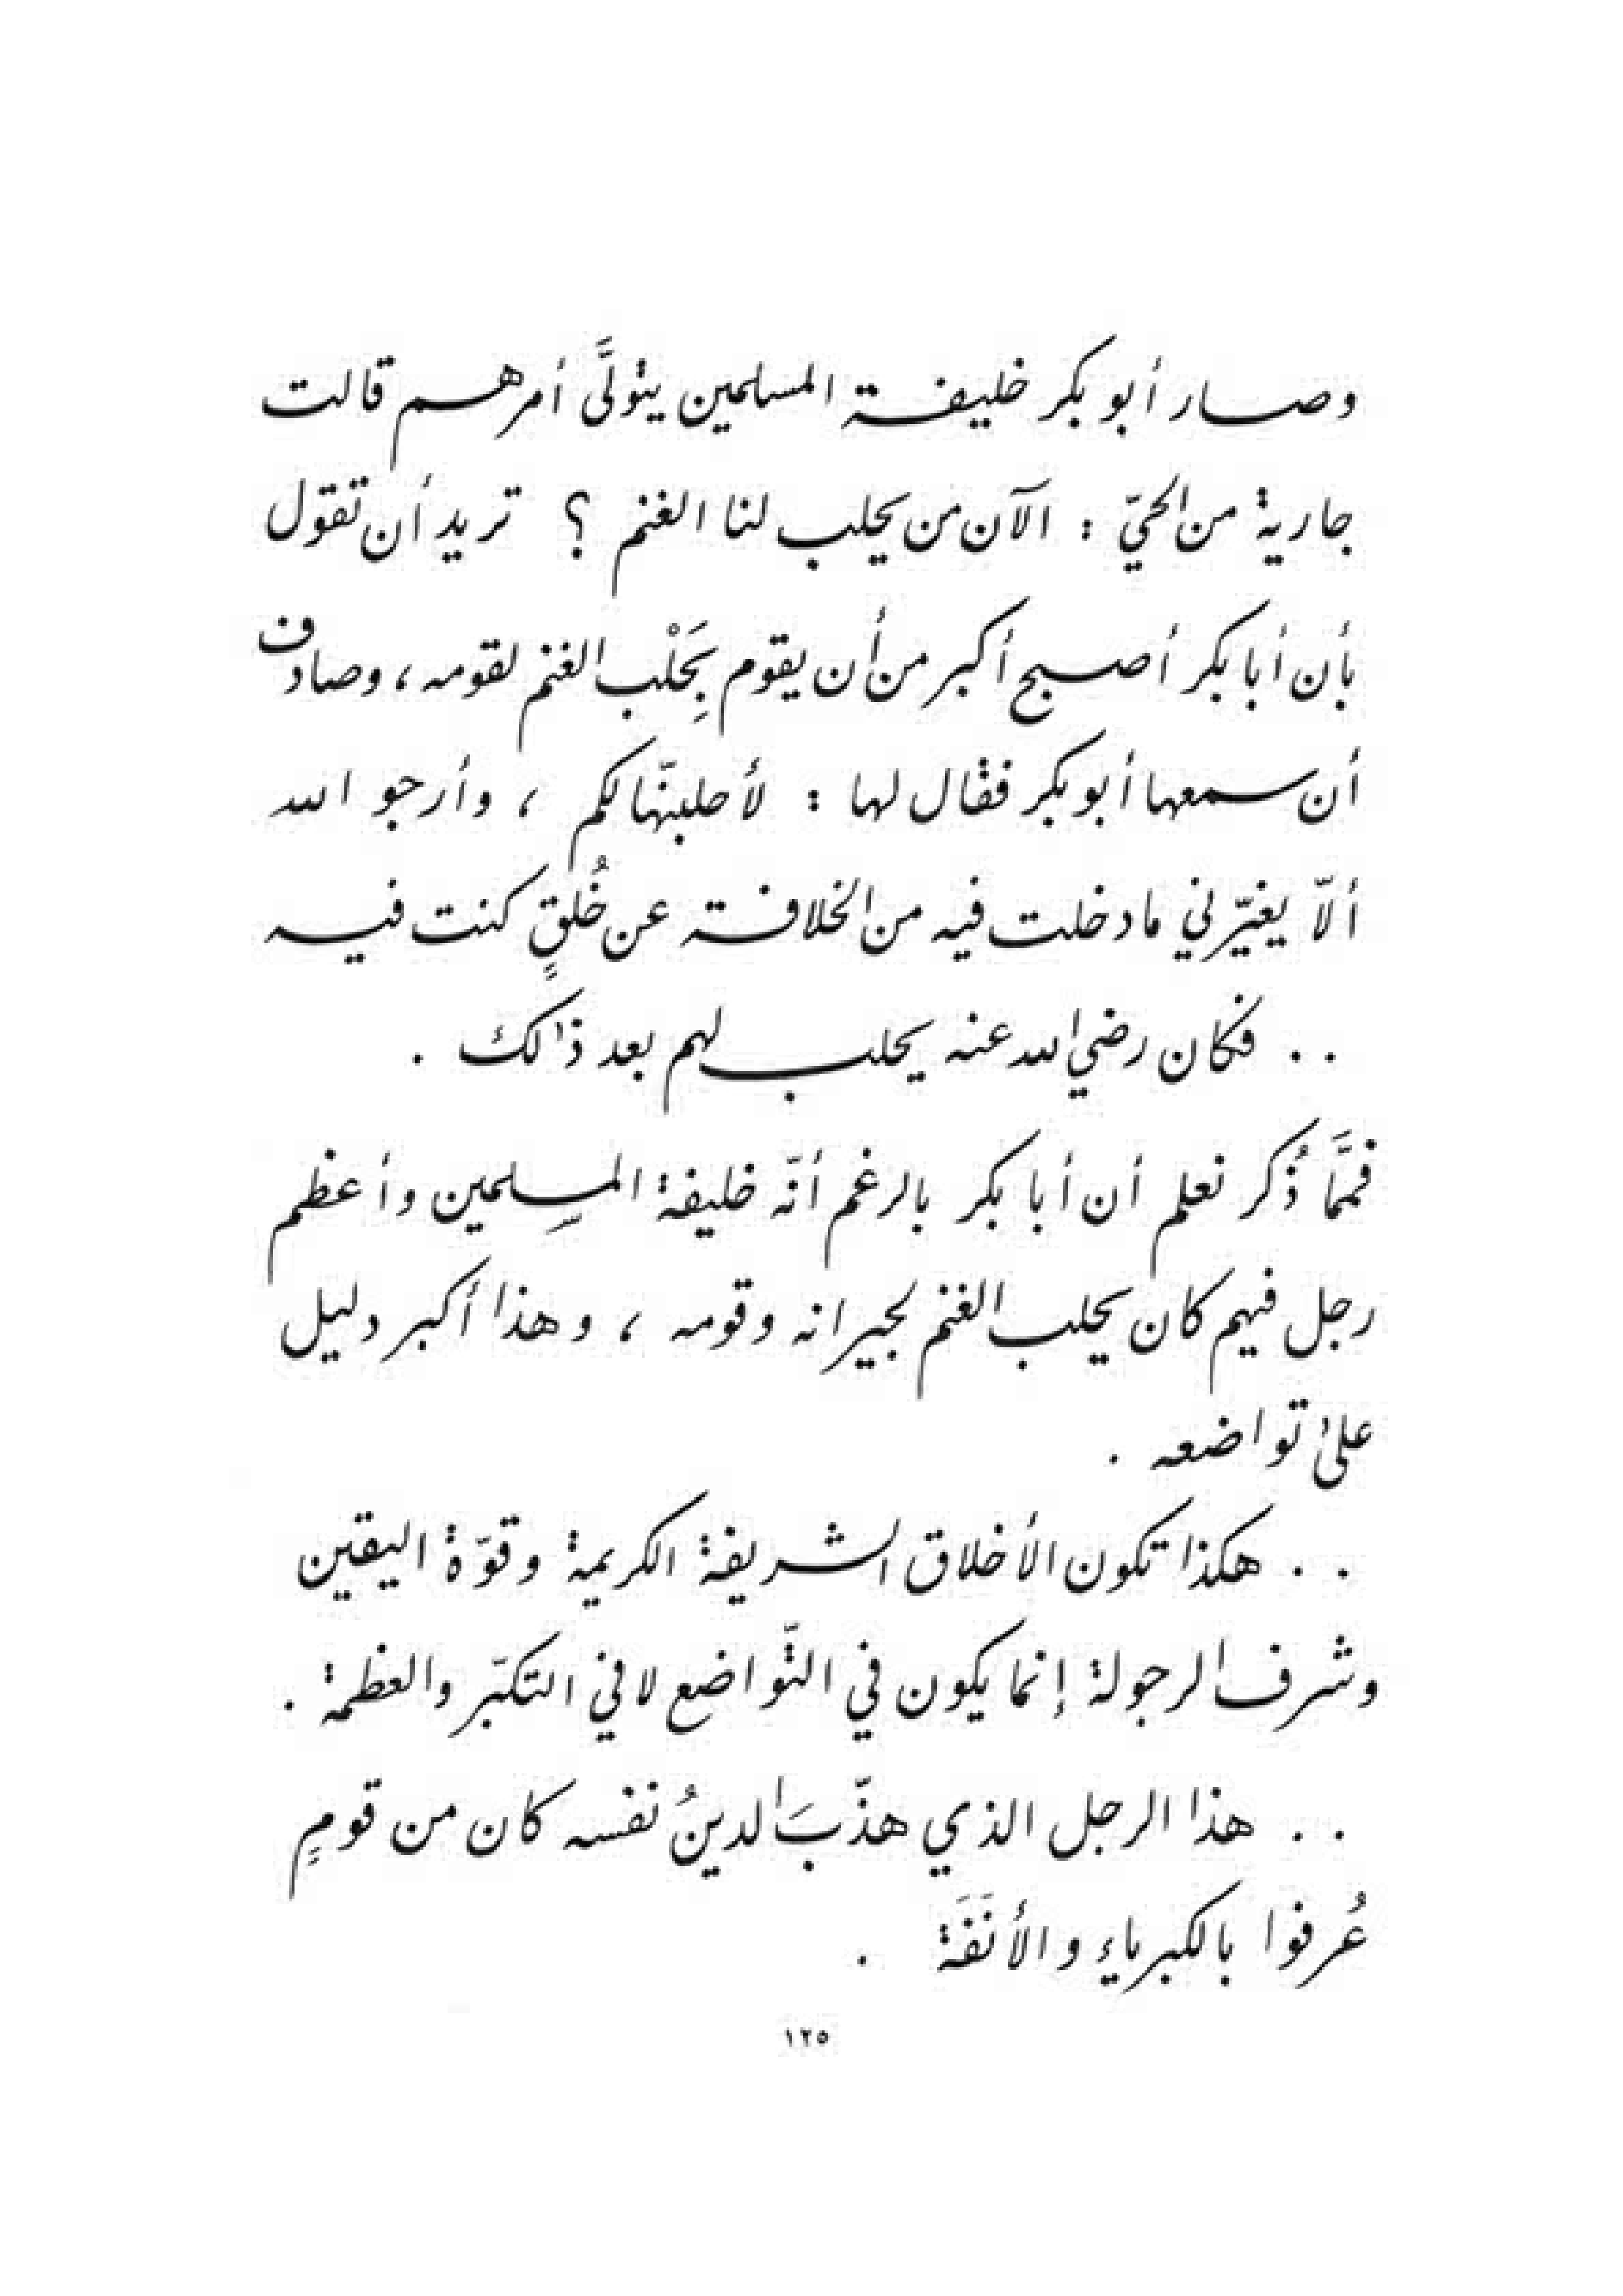 وصار أبو بكر خليفة المسلمين يتولَّى أمرهم قالت
جارية من الحيّ : الآن من يحلب لنا الغنم ؟ تريد أن تقول
بأن أبا بكر أصبح أكبر من أن يقوم بِحَلْب الغنم لقومه ، وصادف
أن سمعها أبو بكر فقال لها : لأحلبنّها لكم ، وأرجو الله
ألاّ يغيّرني ما دخلت فيه من الخلافة عن خُلقٍ كنت فيه
. . فكان رضي الله عنه يحلب لهم بعد ذٰلك .
فممَّا ذُكر نعلم أن أبا بكر بالرغم أنّه خليفة المسِلمين وأعظم
رجل فيهم كان يحلب الغنم لجيرانه وقومه ، وهذا أكبر دليل
علىٰ تواضعه .
. . هكذا تكون الأخلاق الشريفة الكريمة وقوّة اليقين
وشرف الرجولة إنما يكون في التّواضع لا في التكبّر والعظمة .
. . هذا الرجل الذي هذّبَ الدينُ نفسه كان من قومٍ
عُرفوا بالكبرياء والأنَفَة .
١٢٥